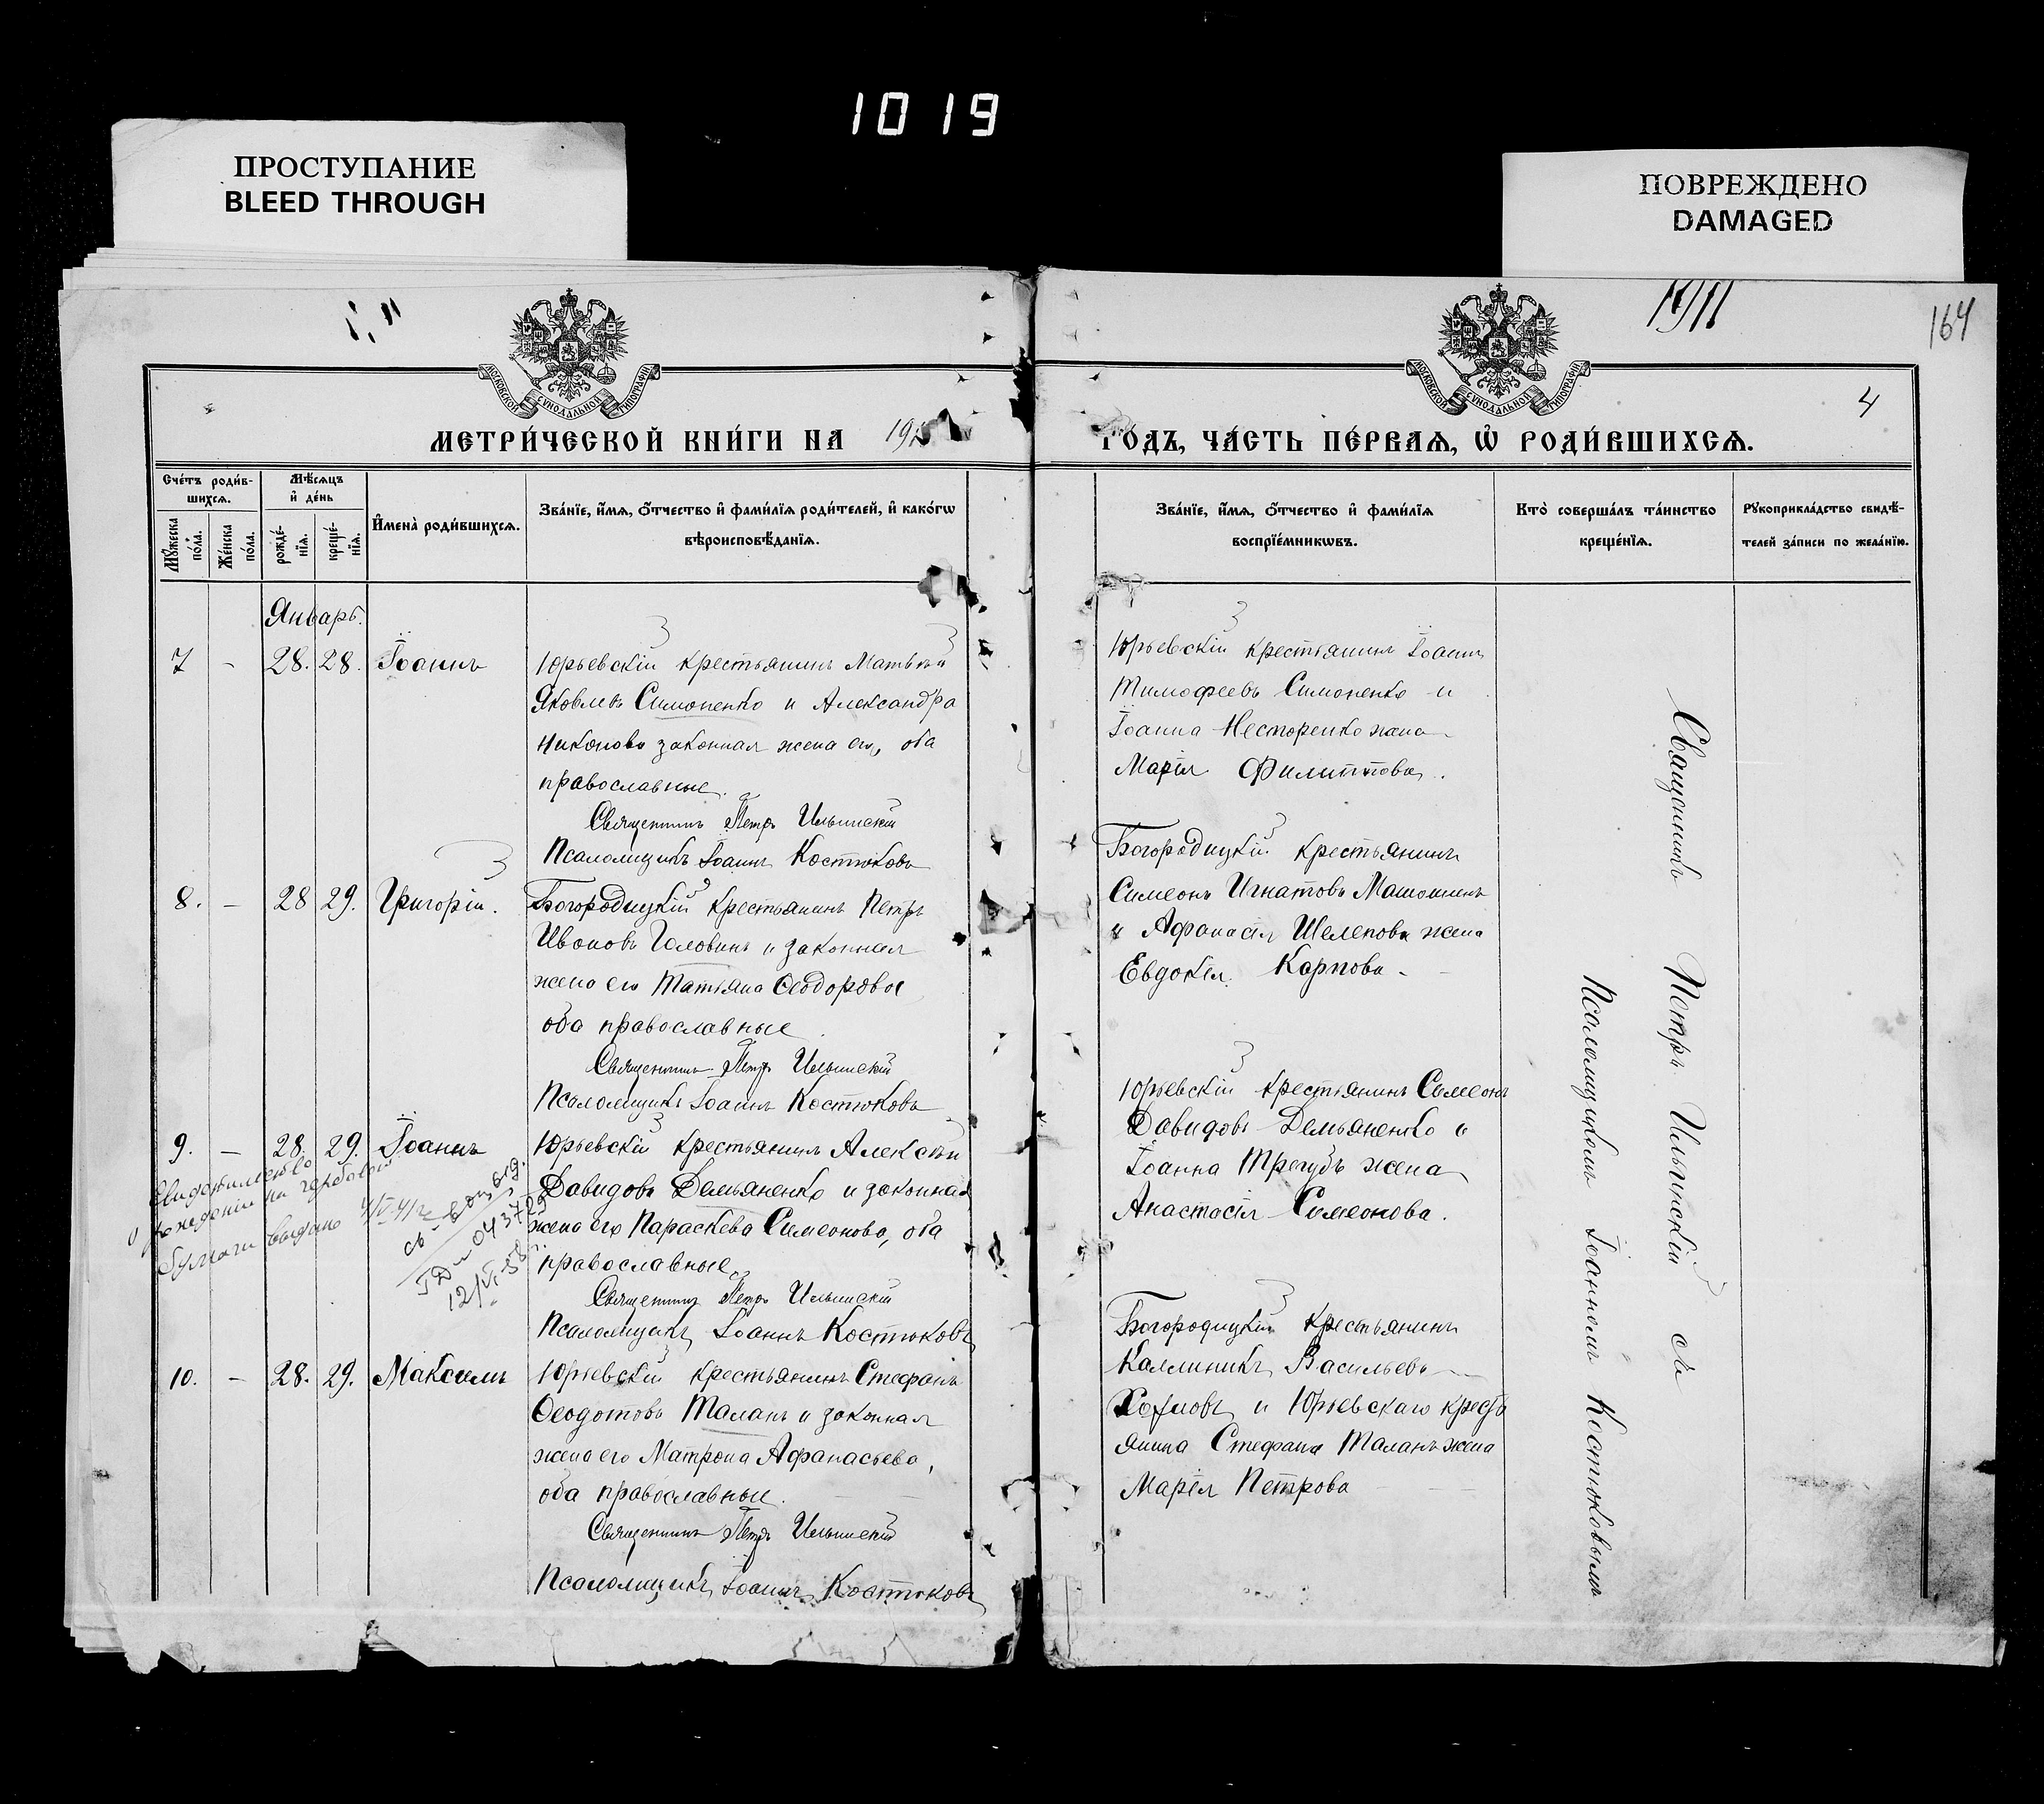 1019
ПРОСТУПАНИЕ
BLEED THROUGH
ПОВРЕЖДЕНО
DAMAGED
1911
164
МОСКОВСКОЙ СУНОДАЛЬНОЙ ТИПОГРАФІИ
МОСКОВСКОЙ СУНОДАЛЬНОЙ ТИПОГРАФІИ
4
МЕТРИ́ЧЕСКОЙ КНИ́ГИ НА 19
ГО́ДЪ, ЧА́СТЬ ПЕ́РВАѦ, Ѡ҆ РОДИ́ВШИХСѦ.
Сче́тъ роди́в-
шихсѧ.
Мꙋжеска
по́ла.
Же́нска
по́ла.
Мѣ́сѧцъ
и҆ де́нь
рожде́-
нїѧ.
креще́-
нїѧ.
И҆мена̀ роди́вшихсѧ.
Зва́нїе, и҆́мѧ, ѻ҆́тчество и҆ фами́лїѧ роди́телей, и҆ како́гѡ
вѣроисповѣ́данїѧ.
Зва́нїе, и҆́мѧ, ѻ҆́тчество и҆ фами́лїѧ
воспрїе́мникѡвъ.
Кто̀ соверша́лъ та́инство
креще́нїѧ.
Рꙋкоприкла́дство свидѣ́-
телей за́писи по жела́нїю.
Январь.
7 - 28. 28. Іоаннъ
Юрьевскій крестьянинъ Матвѣй
Яковлевъ Симоненко и Александра
Никонова законная жена его, оба
православные.
Священникъ Петръ Ильинскій
Псаломщикъ Іоаннъ Костюковъ
Юрьевскій крестьянинъ Іоаннъ
Тимофеевъ Симоненко и
Іоанна Нестеренко жена
Марія Филиппова.
8. - 28 29. Григорій.
Богородицкій крестьянинъ Петръ
Ивановъ Головинъ и законная
жена его Татьяна Ѳеодорова
оба православные
Священникъ Петръ Ильинскій
Псаломщикъ Іоаннъ Костюковъ
Богородицкій крестьянинъ
Симеонъ Игнатовъ
и Афанасія Шелепова жена
Евдокія Карпова
9. - 28. 29. Іоаннъ
Юрьевскій крестьянинъ Алексѣй
Давидовъ Демьяненко и законная
жена его Параскева Симеонова, оба
православные.
Священникъ Петръ Ильинскій
Псаломщикъ Іоаннъ Костюковъ
Свидѣтельство
о рожденіи на гербовой
бумаги выдано
ГД № 043729
12/VI-58
Юрьевскій крестьянинъ Симеонъ
Давидовъ Демьяненко и
Іоанна Трегубъ жена
Анастасія Симеонова.
10. - 28. 29. Максимъ
Юрьевскій крестьянинъ Стефанъ
Ѳеодотовъ Таланъ и законная
жена его Матрона Афанасьева,
оба православные.
Священникъ Петръ Ильинскій
Псаломщикъ Іоаннъ Костюковъ
Богородицкій крестьянинъ
Каллиникъ Васильевъ
и Юрьевскаго кресть
янина Стефана Таланъ жена
Марія Петрова
Священникъ Петръ Ильинскій съ
Псаломщикомъ Іоанномъ Костюковымъ